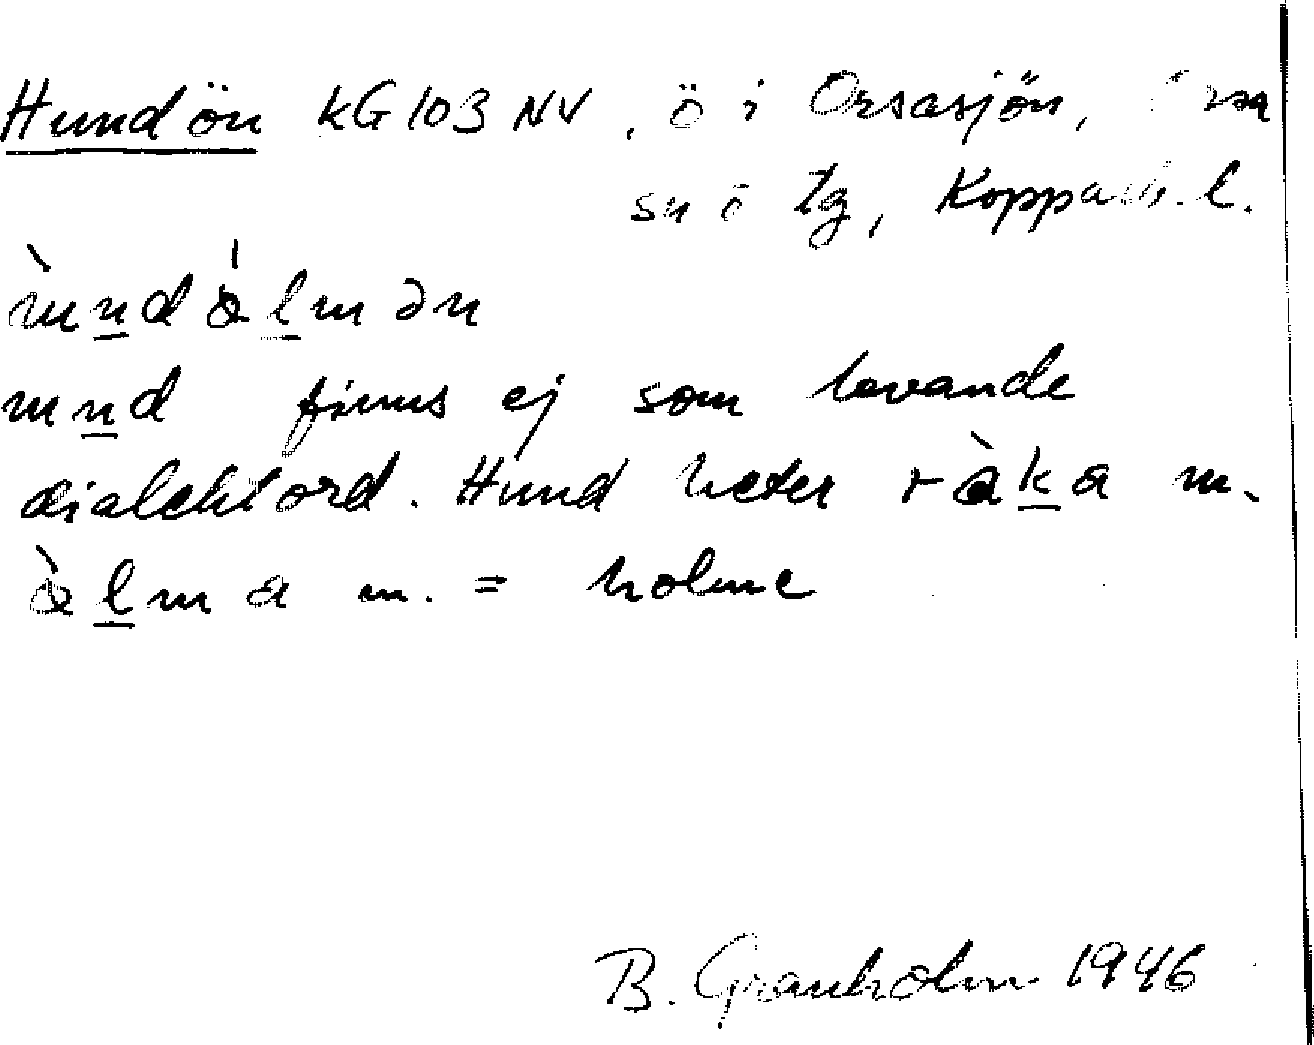 Hundön KG 103 NV, ö i Orsasjön, Orsa
sn o tg, Kopparb. l.
ùndàlmən
und finns ej som levande
dialektord. Hund heter ràka m.
àlma m. = holme
B. Granholm 1946